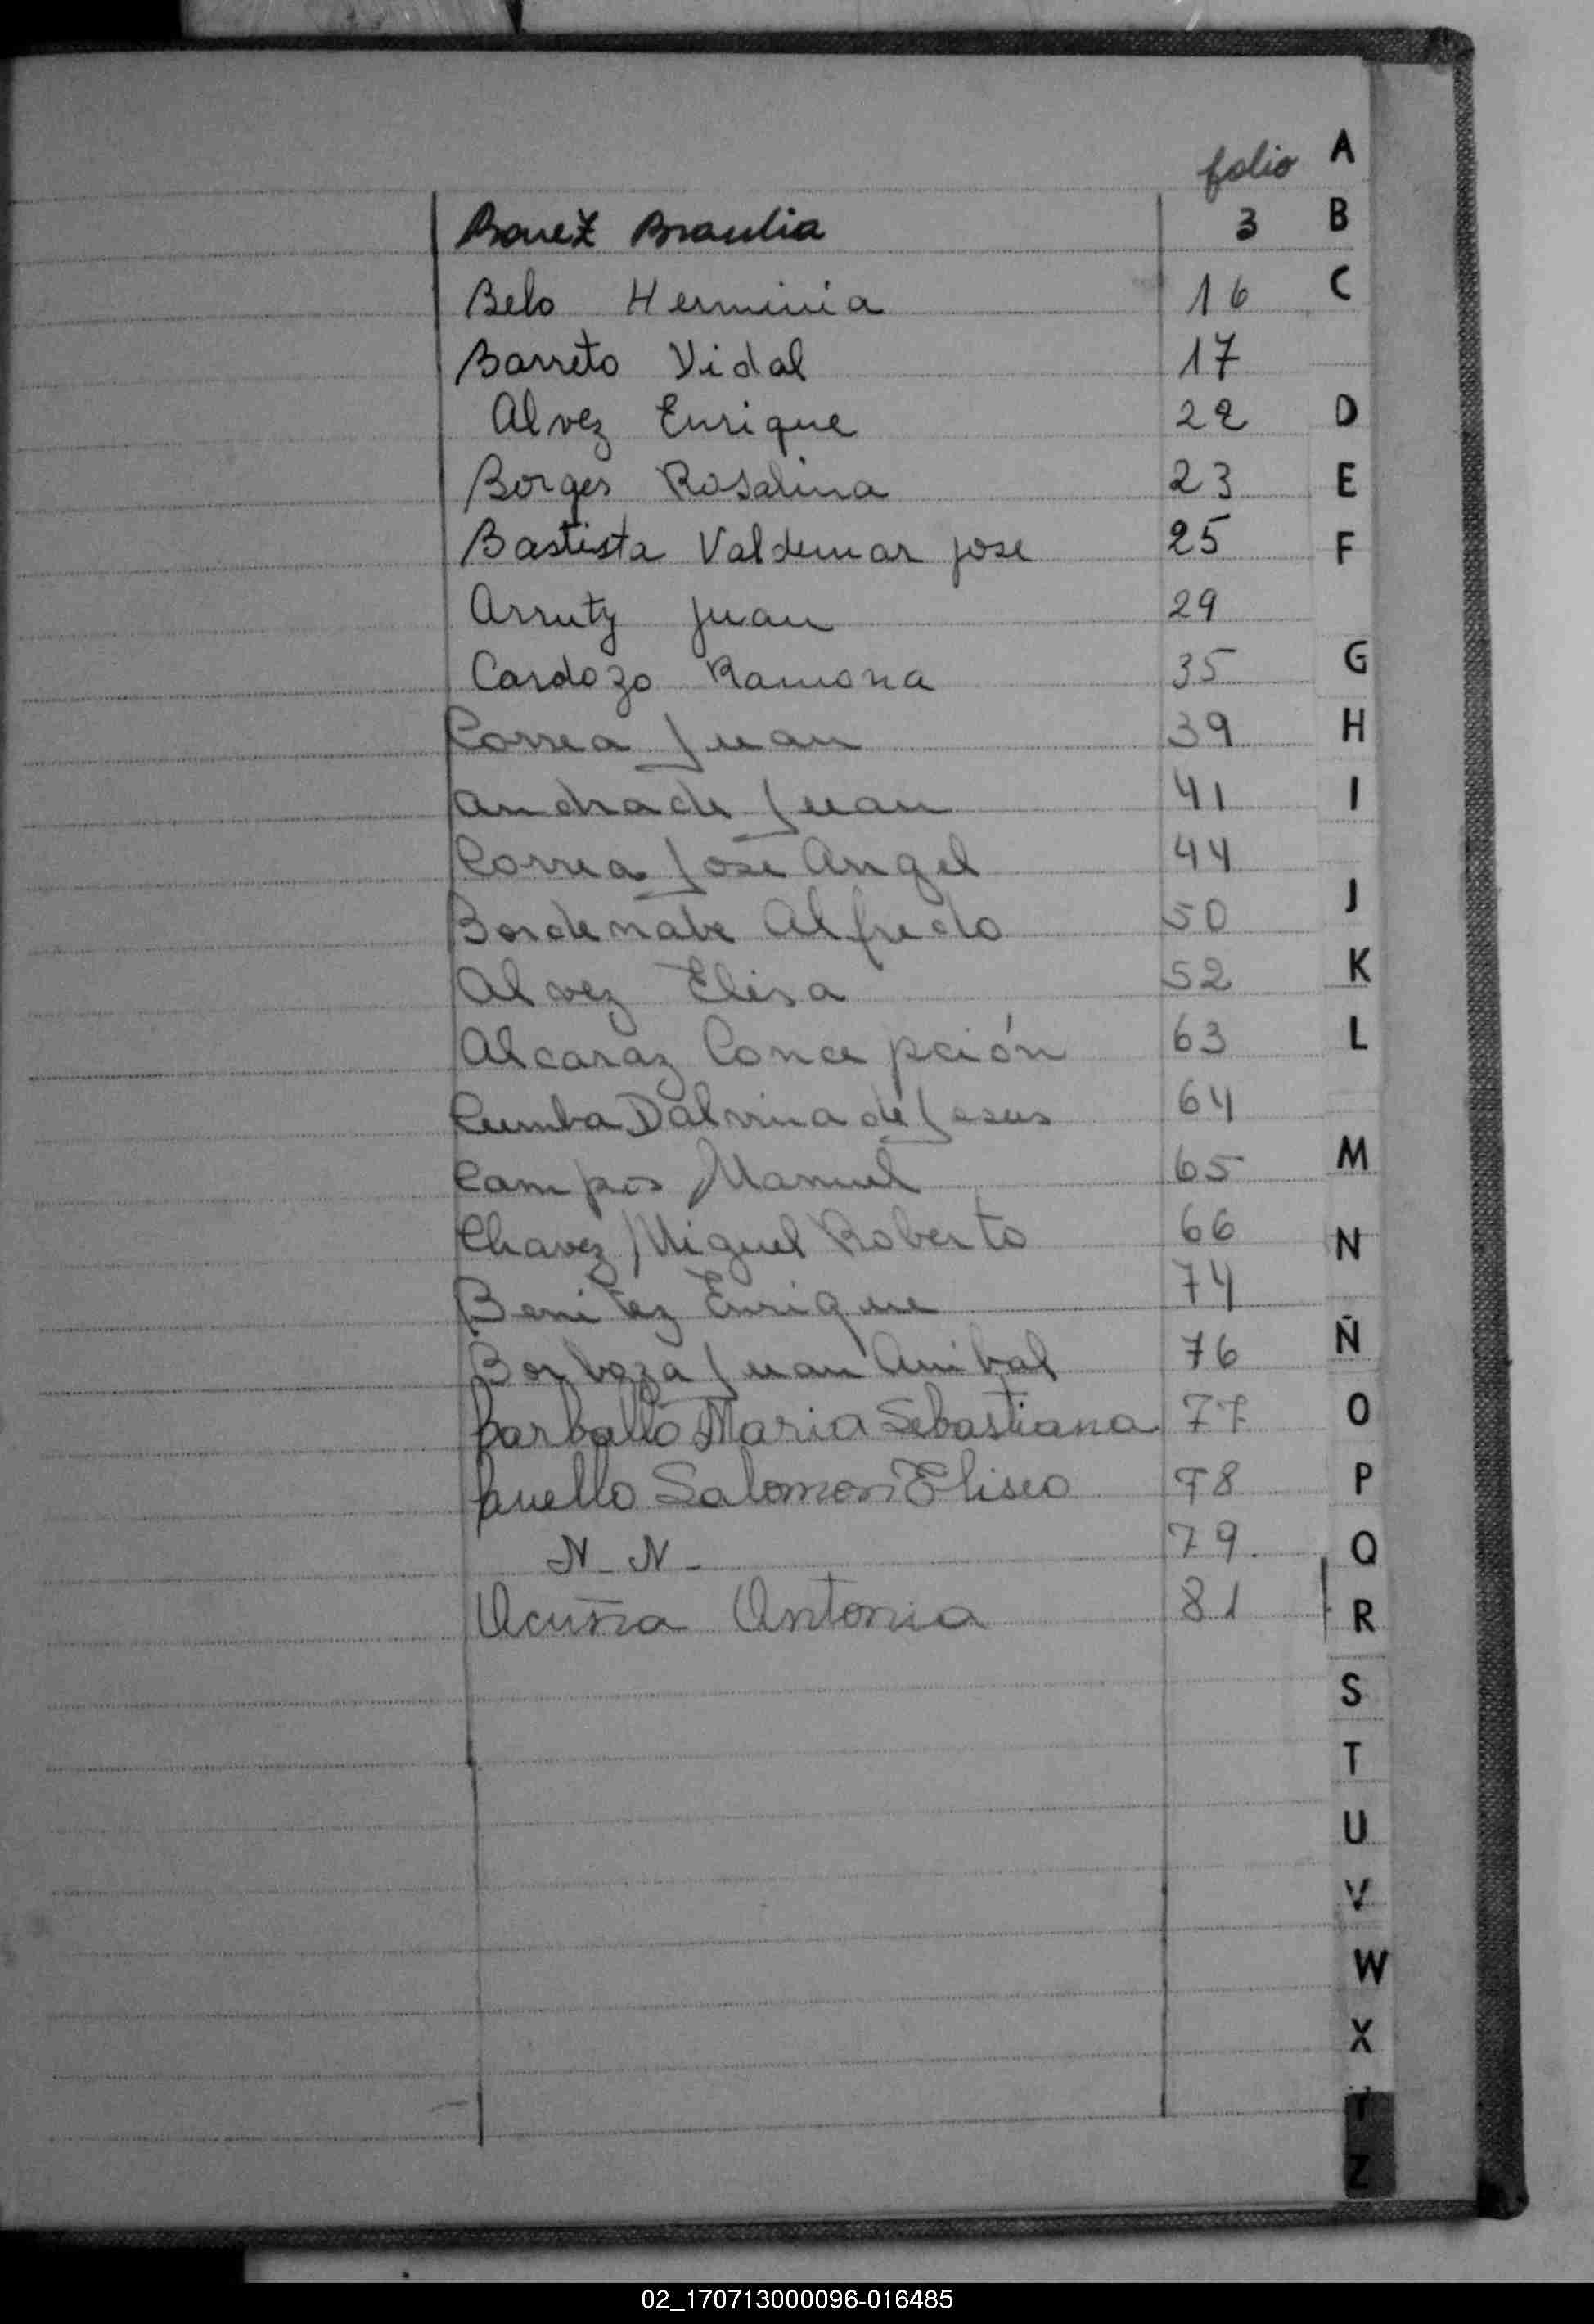 folio
Bonez Braulia 3
Belo Herminia 16
Barreto Vidal 17
Alvez Enrique 22
Borges Rosalina 23
Bastista Valdemar jose 25
Arruty Juan 29
Cardozo Ramona 35
Correa Juan 39
Andrade Juan 41
Correa José Angel 44
Bordenabe Alfredo 50
Alvez Elisa 52
Alcaraz Concepción 63
Cumba Dalvina de Jesus 64
Campos Manuel 65
Chavez Miguel Roberto 66
Benitez Enrique 74
Borboza Juan Anibal 76
Carballo Maria Sebastiana 77
Cuello Salomon Eliseo 78
N_N_ 79.
Acuña Antonia 81
A
B
C
D
E
F
G
H
I
J
K
L
M
N
Ñ
O
P
Q
R
S
T
U
V
W
X
Y
Z
02_170713000096-016485